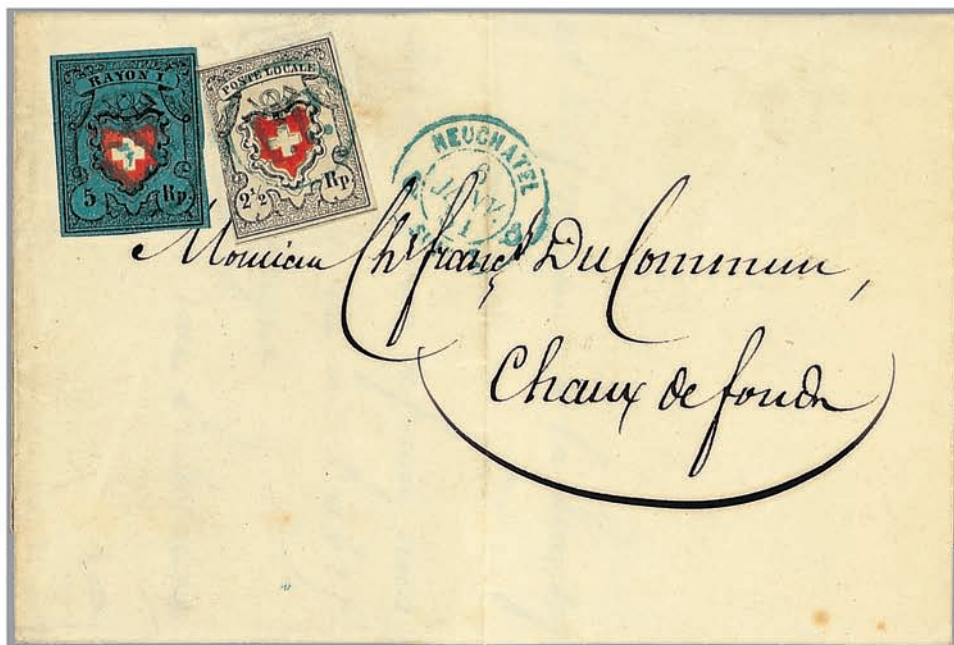 RAYON I
5 Rp.
POSTE LOCALE
2½ Rp.
NEUCHATEL
JANV.
Monsieur Chs franҫs DuCommun,
Chaux de fonds